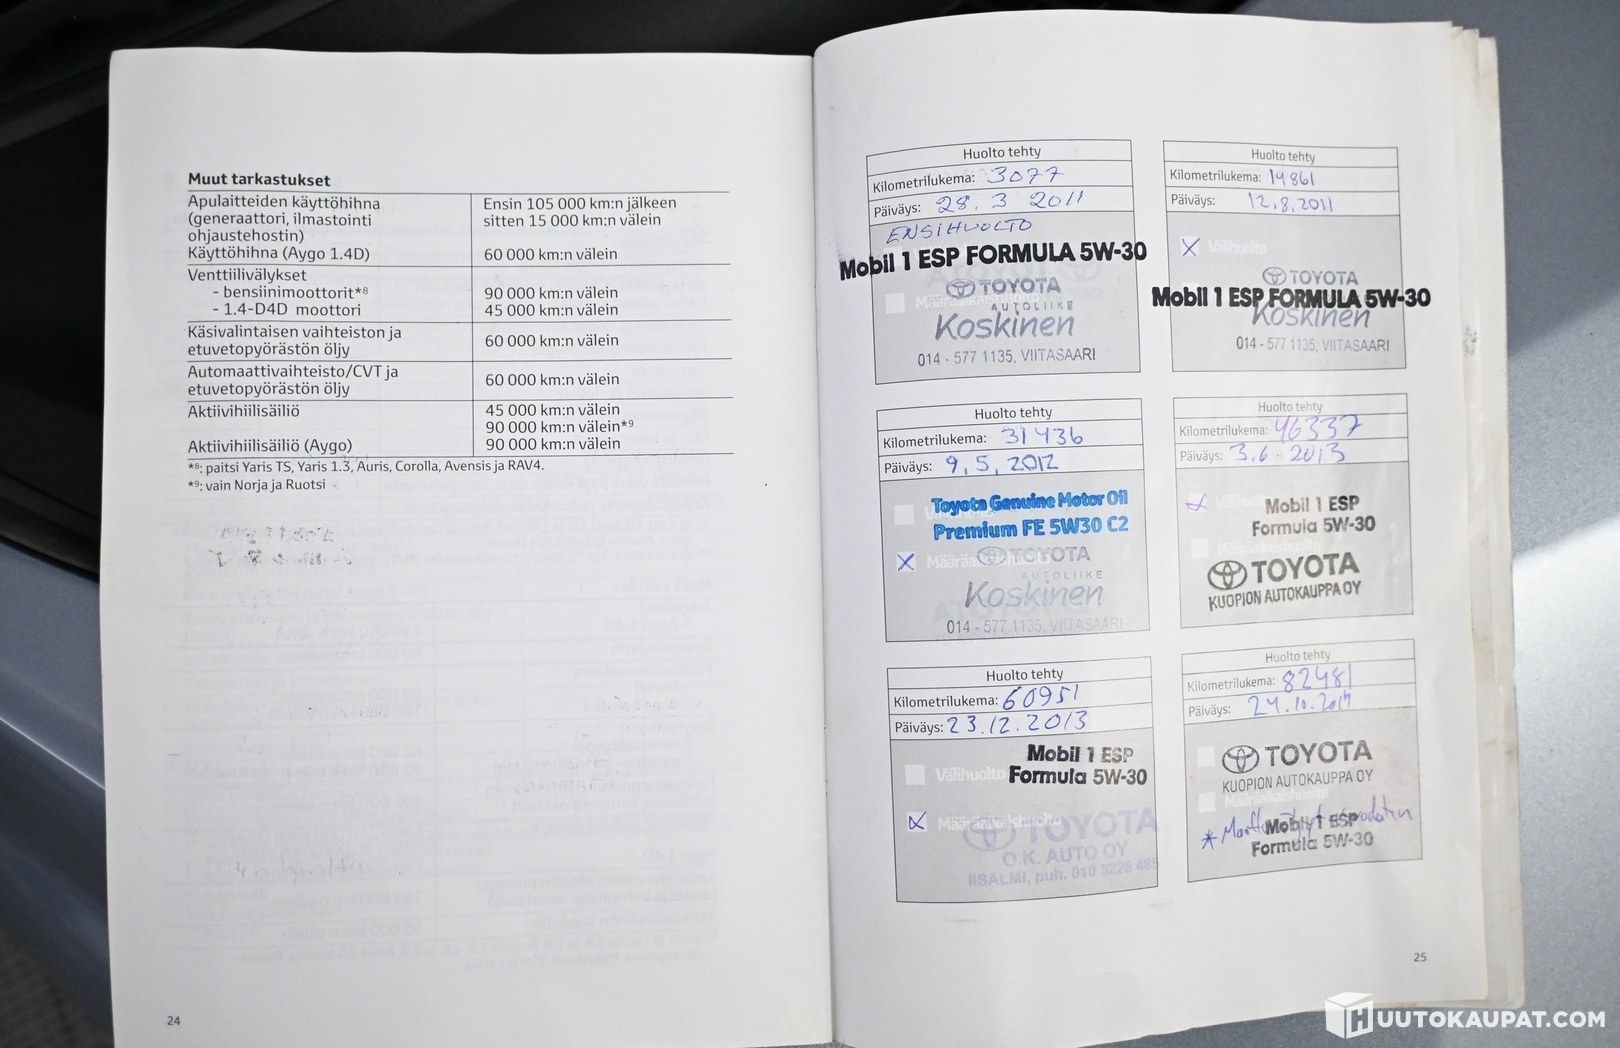 Muut tarkastukset
Apulaitteiden käyttöhihna
(generaattori, ilmastointi
ohjaustehostin)
Ensin 105 000 km:n jälkeen
sitten 15 000 km:n välein
Käyttöhihna (Aygo 1.4D)
60 000 km:n välein
Venttiilivälykset
- bensiinimoottorit*⁸
90 000 km:n välein
- 1.4-D4D moottori
45 000 km:n välein
Käsivalintaisen vaihteiston ja
etuvetopyörästön öljy
60 000 km:n välein
Automaattivaihteisto/CVT ja
etuvetopyörästön öljy
60 000 km:n välein
Aktiivihiilisäiliö
45 000 km:n välein
90 000 km:n välein*⁹
Aktiivihiilisäiliö (Aygo)
90 000 km:n välein
*⁸: paitsi Yaris TS, Yaris 1.3, Auris, Corolla, Avensis ja RAV4.
*⁹: vain Norja ja Ruotsi
24
Huolto tehty
Kilometrilukema: 3077
Päiväys: 28.3 2011
ENSIHUOLTO
Mobil 1 ESP FORMULA 5W-30
Määräaikaishuolto
TOYOTA
AUTOLIIKE
Koskinen
014 - 577 1135, VIITASAARI
Huolto tehty
Kilometrilukema: 14861
Päiväys: 12.8.2011
Välihuolto
TOYOTA
Mobil 1 ESP FORMULA 5W-30
Koskinen
014 - 577 1135, VIITASAARI
Huolto tehty
Kilometrilukema: 31436
Päiväys: 9.5.2012
Toyota Genuine Motor Oil
Premium FE 5W30 C2
Määräaikaishuolto
TOYOTA
AUTOLIIKE
Koskinen
014 - 577 1135, VIITASAARI
Huolto tehty
Kilometrilukema: 46337
Päiväys: 3.6-2013
Välihuolto
Mobil 1 ESP
Formula 5W-30
TOYOTA
KUOPION AUTOKAUPPA OY
Huolto tehty
Kilometrilukema: 60951
Päiväys: 23.12.2013
Mobil 1 ESP
Välihuolto
Formula 5W-30
Määräaikaishuolto
TOYOTA
O.K. AUTO OY
IISALMI, puh. 010 5228 485
Huolto tehty
Kilometrilukema: 82481
Päiväys: 24.10.2014
TOYOTA
KUOPION AUTOKAUPPA OY
Määräaikaishuolto
Mobil 1 ESP
Formula 5W-30
25
HUUTOKAUPAT.COM